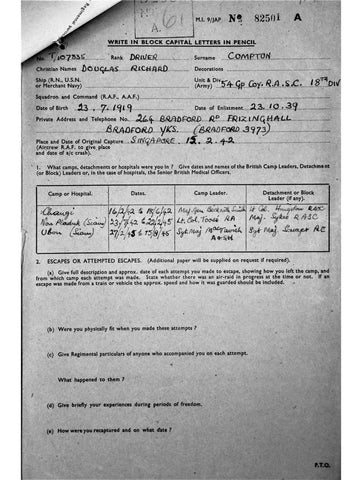 M.I. 9/JAP Nº 82501 A
A.61
WRITE IN BLOCK CAPITAL LETTERS IN PENCIL
No. T/107835 Rank DRIVER Surname COMPTON
Christian Names DOUGLAS RICHARD Decorations
Ship (R.N., U.S.N. or Merchant Navy) Unit & Div (Army) 54 Gp Coy. R.A.S.C. 18th Div
Squadron and Command (R.A.F., A.A.F.)
Date of Birth 23.7.1919 Date of Enlistment 23.10.39
Private Address and Telephone No. 264 BRADFORD RD FRIZINGHALL
BRADFORD YKS. (BRADFORD 3973)
Place and Date of Original Capture SINGAPORE 15.2.42
(Aircrew R.A.F. to give place
and date of a/c crash).
1. What camps, detachments or hospitals were you in? Give dates and names of the British Camp Leaders, Detachment
(or Block) Leaders or, in the case of hospitals, the Senior British Medical Officers.
Camp or Hospital. Dates. Camp Leader. Detachment or Block Leader (if any).
Changi 16/2/42 to 18/6/42 Maj. Gen Beckwith Smith Lt Col. RASC
Non Pladuk (Siam) 23/ /42 to 22/2/45 Lt. Col. Toosey RA Maj. Sykes RASC
Ubon (Siam) 27/2/45 to 15/8/45 Sgt Maj McTavish A+SH Sgt Maj. RE
2. ESCAPES OR ATTEMPTED ESCAPES. (Additional paper will be supplied on request if required).
(a) Give full description and approx. date of each attempt you made to escape, showing how you left the camp, and
from which camp each attempt was made. State whether there was an air-raid in progress at the time or not. If an
escape was made from a train or vehicle the approx. speed and how it was guarded should be included.
(b) Were you physically fit when you made these attempts?
(c) Give Regimental particulars of anyone who accompanied you on each attempt.
What happened to them?
(d) Give briefly your experiences during periods of freedom.
(e) How were you recaptured and on what date?
P.T.O.